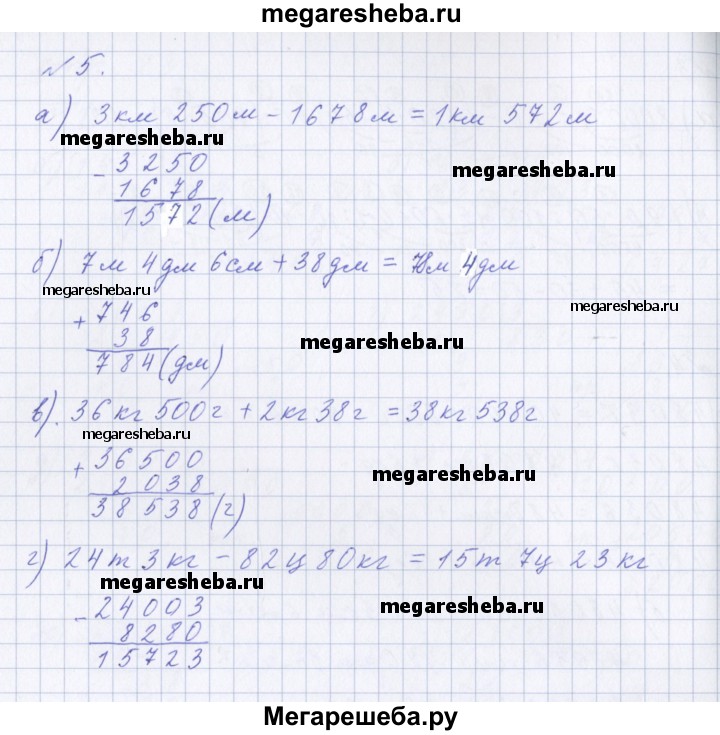 megaresheba.ru
№5.
а) 3км 250м - 1678м = 1км 572м
megaresheba.ru
megaresheba.ru
- 3250
1678
1572(м)
б) 7м 4дм 6см + 38дм = 78м 4дм
megaresheba.ru
megaresheba.ru
+ 746
38
megaresheba.ru
784(дм)
в). 36кг 500г + 2кг 38г = 38кг 538г
megaresheba.ru
+ 36500
megaresheba.ru
2038
38538(г)
г) 24т 3кг - 82ц 80кг = 15т 7ц 23кг
megaresheba.ru
megaresheba.ru
- 24003
8280
15723
Мегарешеба.ру